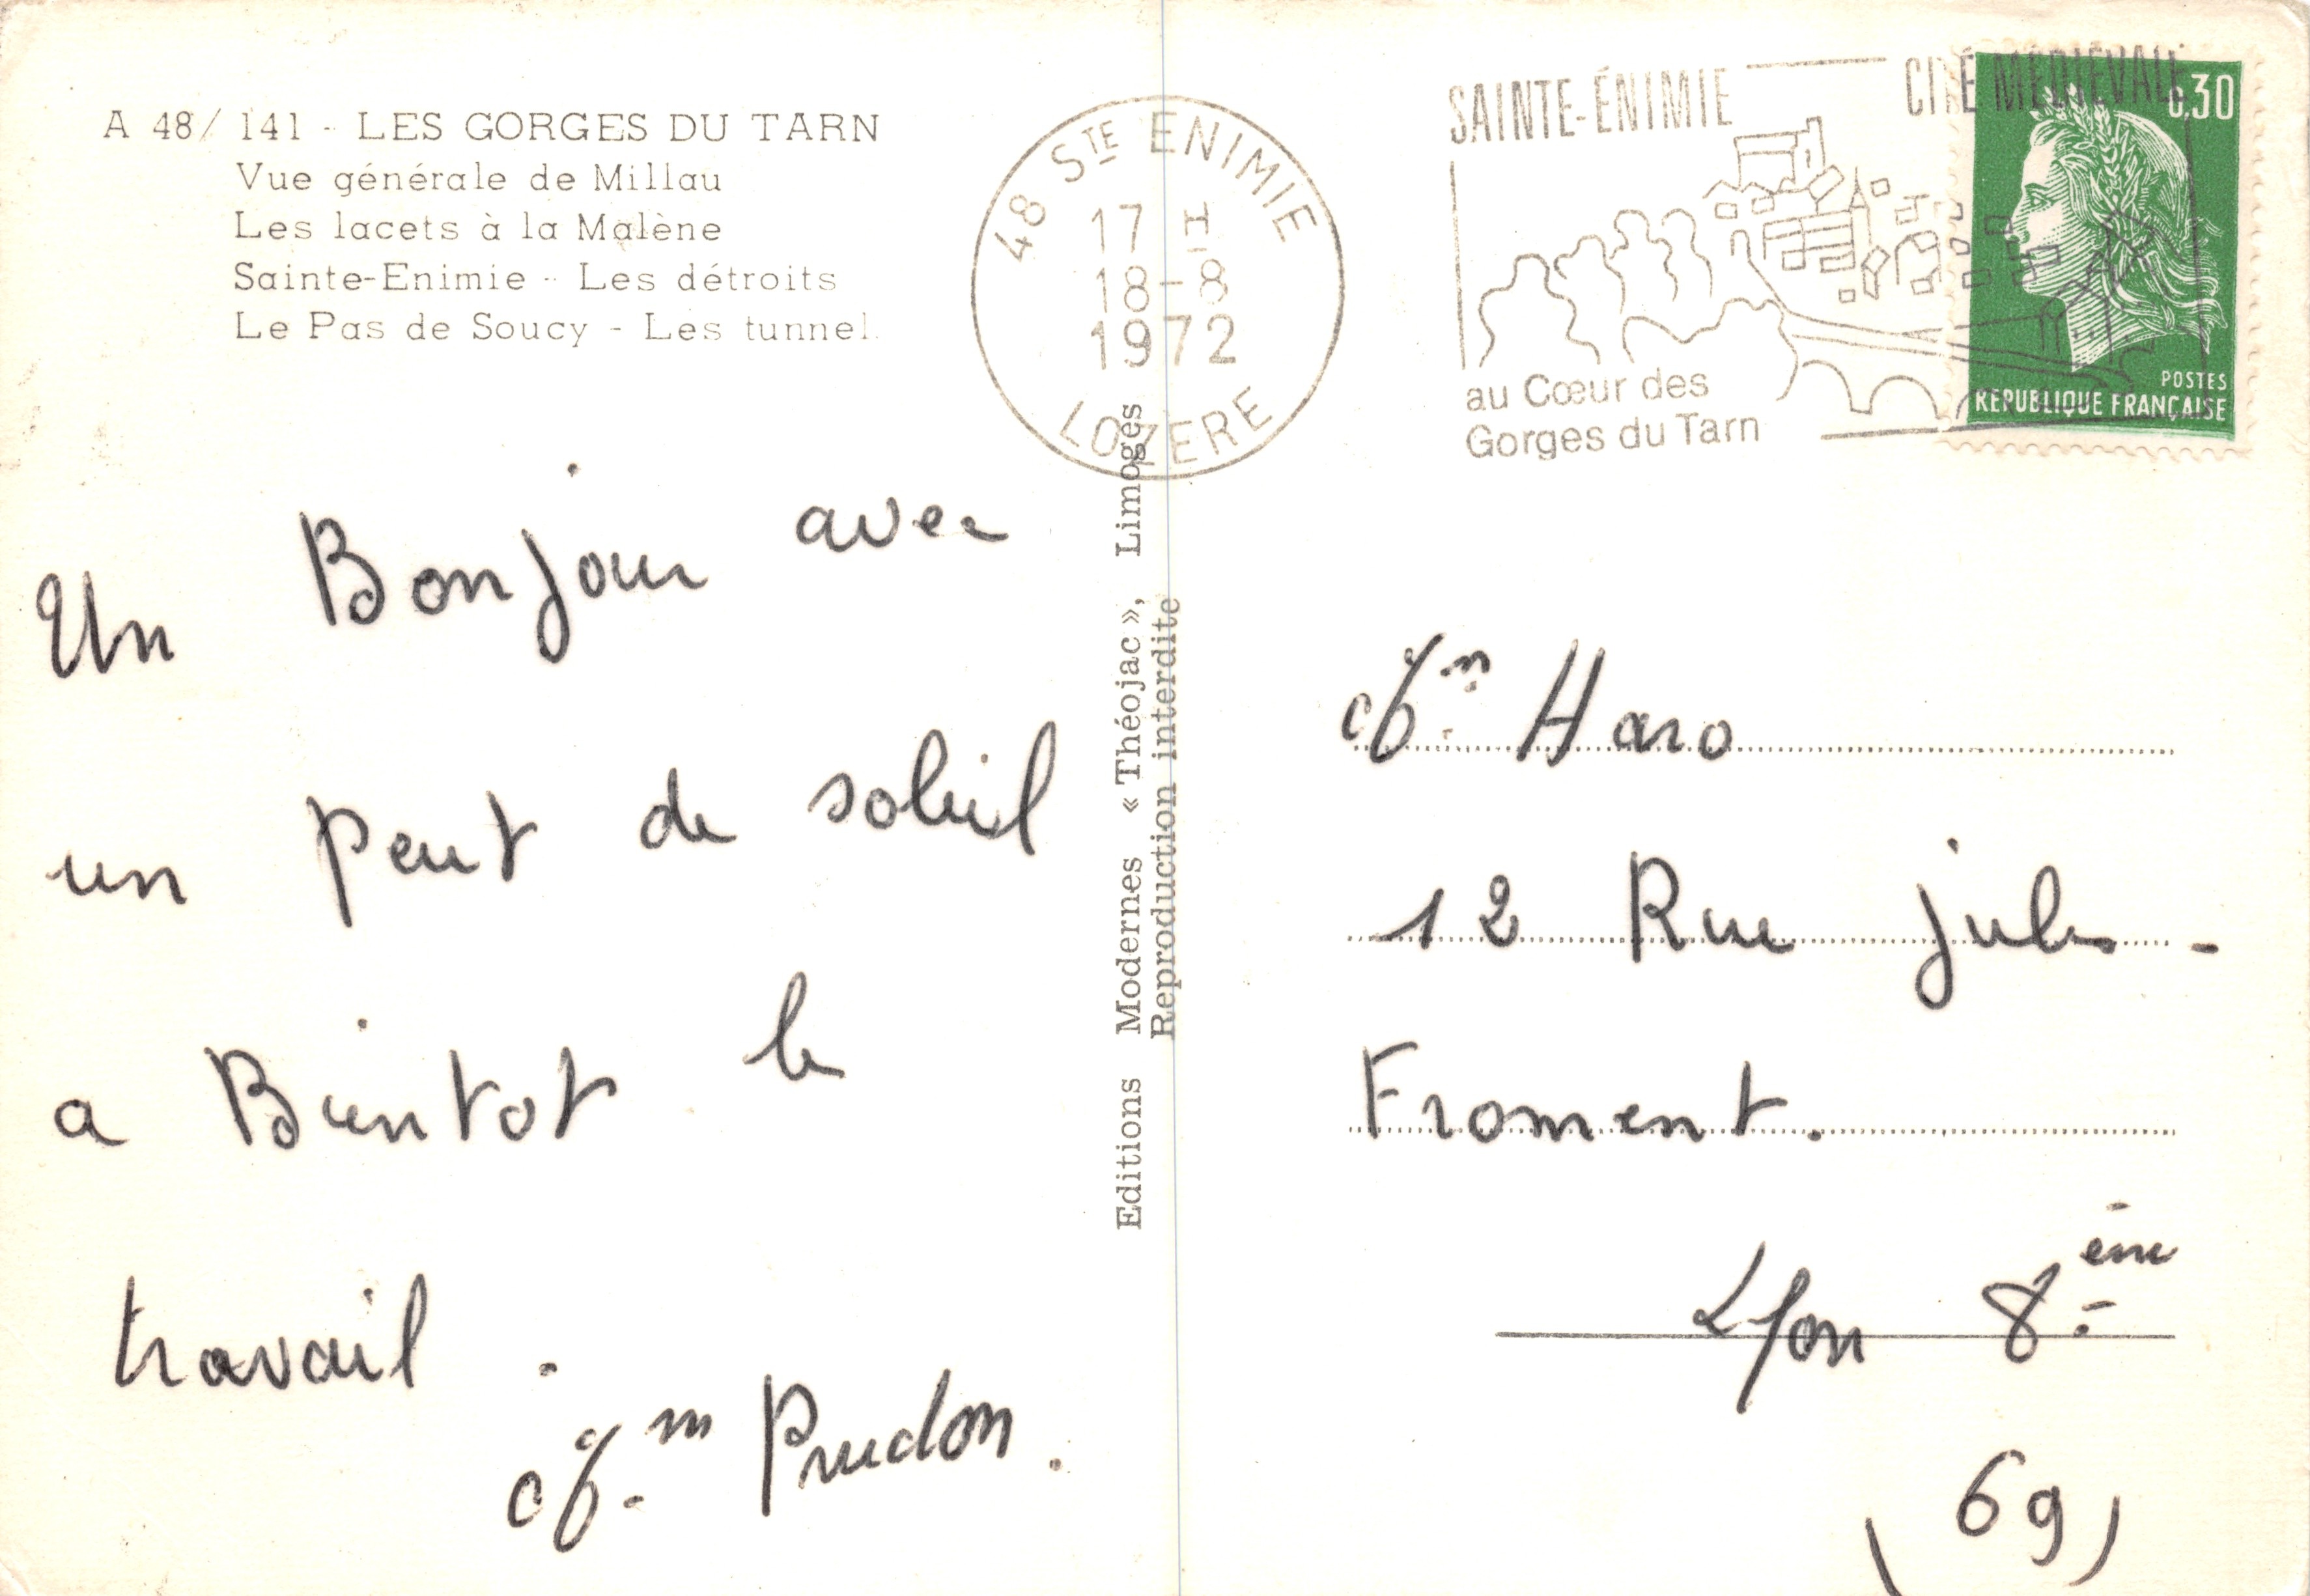 A 48/ 141 - LES GORGES DU TARN
Vue générale de Millau
Les lacets à la Malène
Sainte-Enimie - Les détroits
Le Pas de Soucy - Les tunnel
48 STE ENIMIE
17 H
18-8
1972
LOZERE
SAINTE-ÉNIMIE CITÉ MÉDIÉVALE
au Cœur des
Gorges du Tarn
0,30
POSTES
REPUBLIQUE FRANÇAISE
Un Bonjour avec
un peut de soleil
a Bientot le
travail.
Prudon.
Editions Modernes « Théojac », Limoges
Reproduction interdite
Haro
12 Rue Jules-
Froment.
Lyon 8ème
(69)